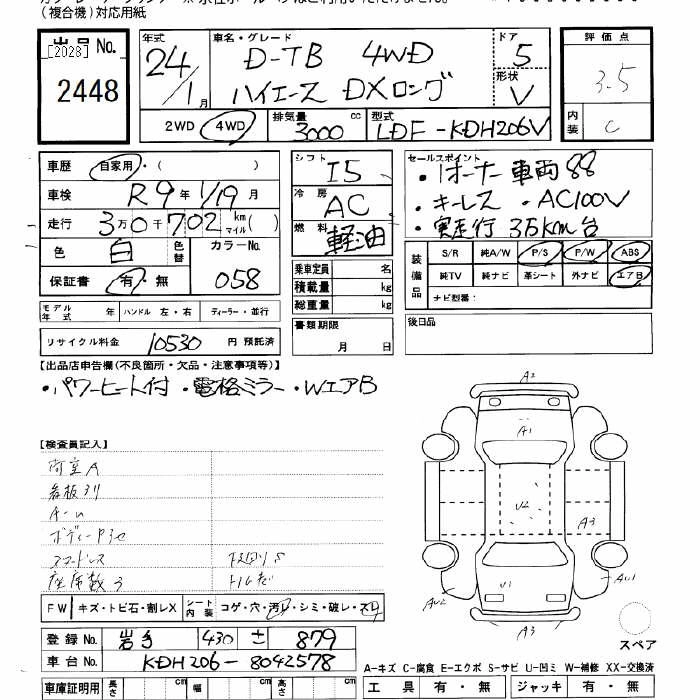 (複合機)対応用紙
出品No.
[2028]
2448
年式
24/1月
車名・グレード
D-TB 4WD
ハイエース DXロング
ドア
5
形状
V
評価点
3.5
内装
C
2WD 4WD
排気量
3000 cc
型式
LDF-KDH206V
車歴 自家用・( )
車検 R9年 1/19月
走行 3万0千702 km マイル( )
色 白 色替 カラーNo.
保証書 有・無 058
モデル年式 年 ハンドル 左・右 ディーラー・並行
リサイクル料金 10530 円 預託済
シフト I5
冷房 AC
燃料 軽油
乗車定員 名
積載量 kg
総重量 kg
書類期限
月 日
セールスポイント
・1オーナー車両88
・キーレス ・AC100V
・実走行 3万km台
装備品
S/R 純A/W P/S P/W ABS
純TV 純ナビ 革シート 外ナビ エアB
ナビ型番:
後日品
【出品店申告欄(不良箇所・欠品・注意事項等)】
・パワーヒート付 ・電格ミラー ・WエアB
【検査員記入】
荷室A
看板跡
ボディーP
座席数3
下回りS
FW キズ・トビ石・割レX シート内装 コゲ・穴・汚レ・シミ・破レ・スレ
登録No. 岩手 430 ± 879
車台No. KDH206-8042578
車庫証明用 長さ cm 幅 cm 高さ cm
A2
A1
U2
A3
U1
AU2
AU1
A3
スペア
A-キズ C-腐食 E-エクボ S-サビ U-凹ミ W-補修 XX-交換済
工具 有・無 ジャッキ 有・無